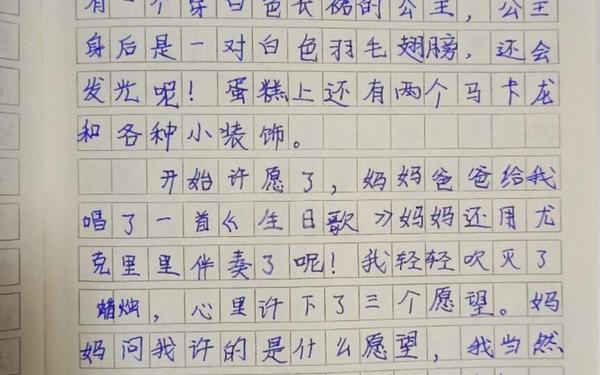 有一个穿白色长裙的公主,公主
身后是一对白色羽毛翅膀,还会
发光呢!蛋糕上还有两个马卡龙
和各种小装饰。
开始许愿了,妈妈爸爸给我
唱了一首《生日歌》妈妈还用尤
克里里伴奏了呢!我轻轻吹灭了
蜡烛,心里许下了三个愿望。妈
妈问我许的是什么愿望,我当然